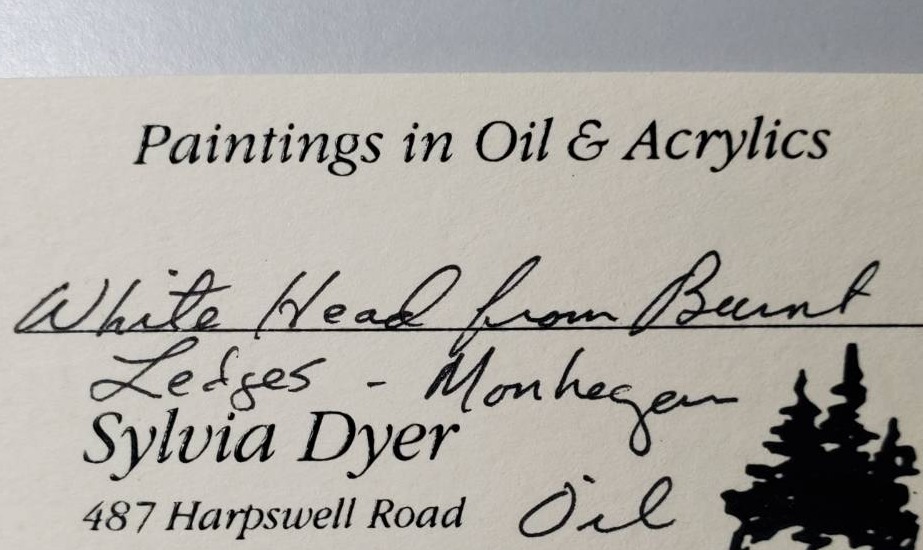 Paintings in Oil & Acrylics
White Head from Burnt
Ledges - Monhegan
Sylvia Dyer
487 Harpswell Road
Oil